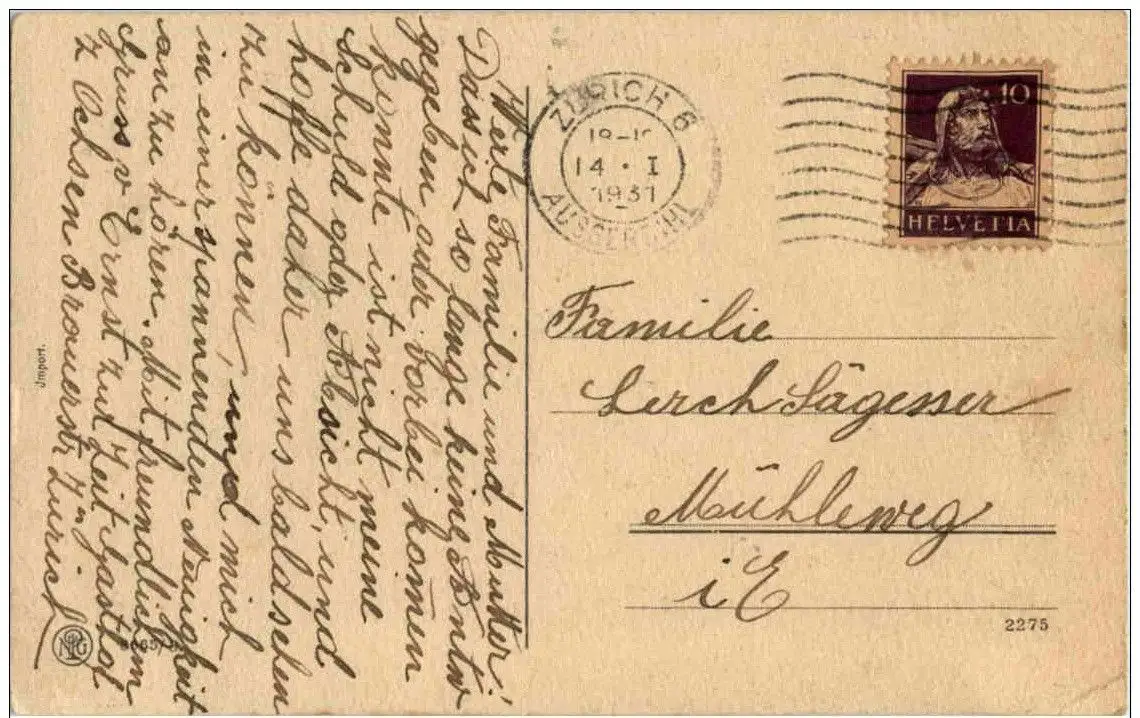 Werte Familie und Mutter!
Dass ich so lange keine Antw
gegeben oder vorbei kom̄en
konnte ist nicht meine
Schuld oder Absicht, und
hoffe daher uns bald sehen
zu können, und mich
in einer spannenden Neuigkeit
an zu hören. Mit freundlichem
Gruss v Ernst zur Zeit Gasthof
z Ochsen Brauerstr. Zürich
Import.
ZÜRICH 6
14 · I
1931
AUSSERSIHL
10
HELVETIA
Familie
Lerch Sägesser
Mühleweg
i E
2275